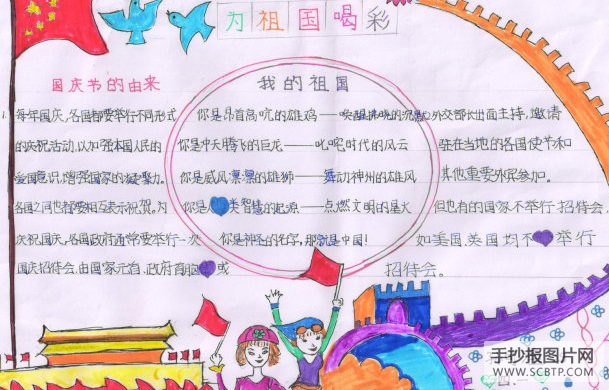 为祖国喝彩
国庆节的由来
每年国庆,各国都要举行不同形式
的庆祝活动,以加强本国人民的
爱国意识,增强国家的凝聚力。
各国之间也都要相互表示祝贺。为
庆祝国庆,各国政府通常要举行一次
国庆招待会,由国家元首、政府首脑或
外交部长出面主持,邀请
驻在当地的各国使节和
其他重要外宾参加。
但也有的国家不举行招待会,
如美国、英国均不举行
招待会。
我的祖国
你是昂首高吭的雄鸡——唤醒拂晓的沉默
你是冲天腾飞的巨龙——叱咤时代的风云
你是威风凛凛的雄狮——舞动神州的雄风
你是人类智慧的起源——点燃文明的星火
你是神圣的名字,那就是中国!
手抄报图片网
WWW.SCBTP.COM